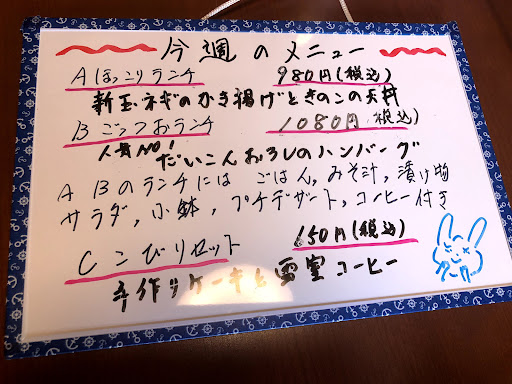 今週のメニュー
Aほっこりランチ 980円(税込)
新玉ネギのかき揚げときのこの天丼
Bごっつおランチ 1080円(税込)
人気NO!
だいこんおろしのハンバーグ
A Bのランチには ごはん,みそ汁,漬け物
サラダ,小鉢,プチデザート,コーヒー付き
Cこびりセット 150円(税込)
手作りケーキと 画室コーヒー